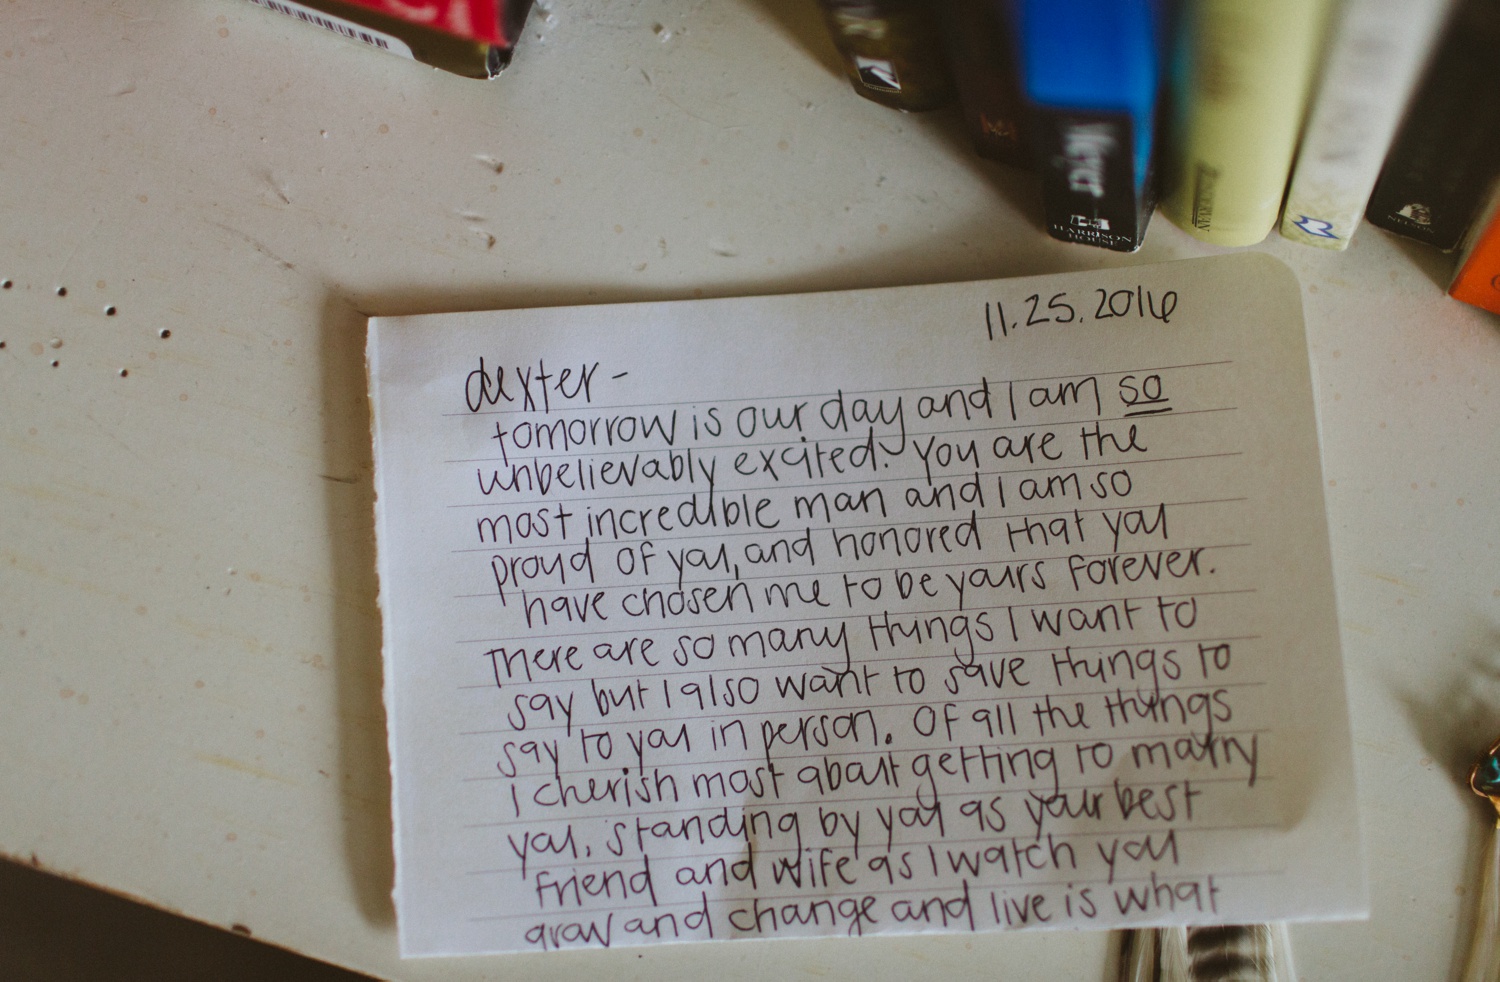 Meyer
HARRISON
HOUSE
ZONDERVAN
NELSON
11.25.2016
dexter-
tomorrow is our day and I am so
unbelievably excited. You are the
most incredible man and I am so
proud of you, and honored that you
have chosen me to be yours forever.
There are so many things I want to
say but I also want to save things to
say to you in person. Of all the things
I cherish most about getting to marry
you, standing by you as your best
friend and wife as I watch you
grow and change and live is what